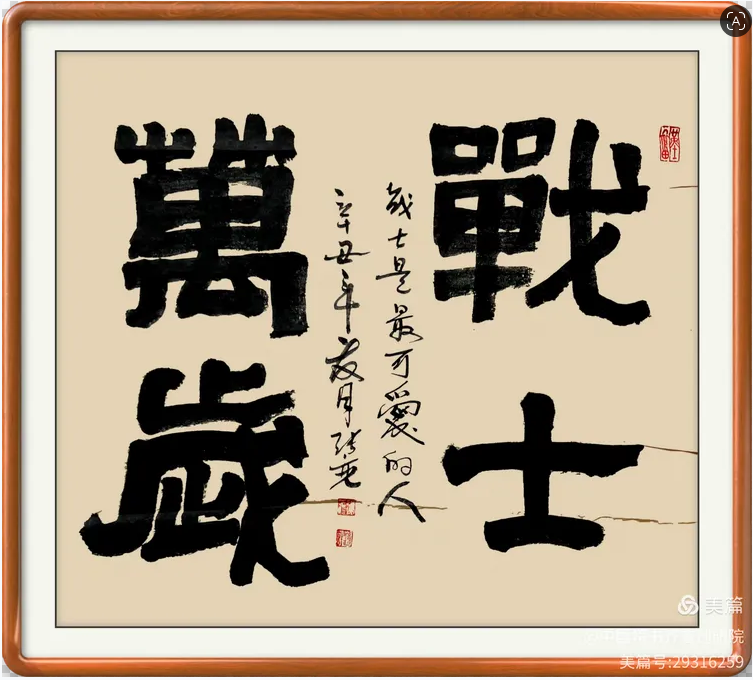 戰士
战士是最可愛的人
辛丑年夏月
萬歲
美篇
美篇号:29316259